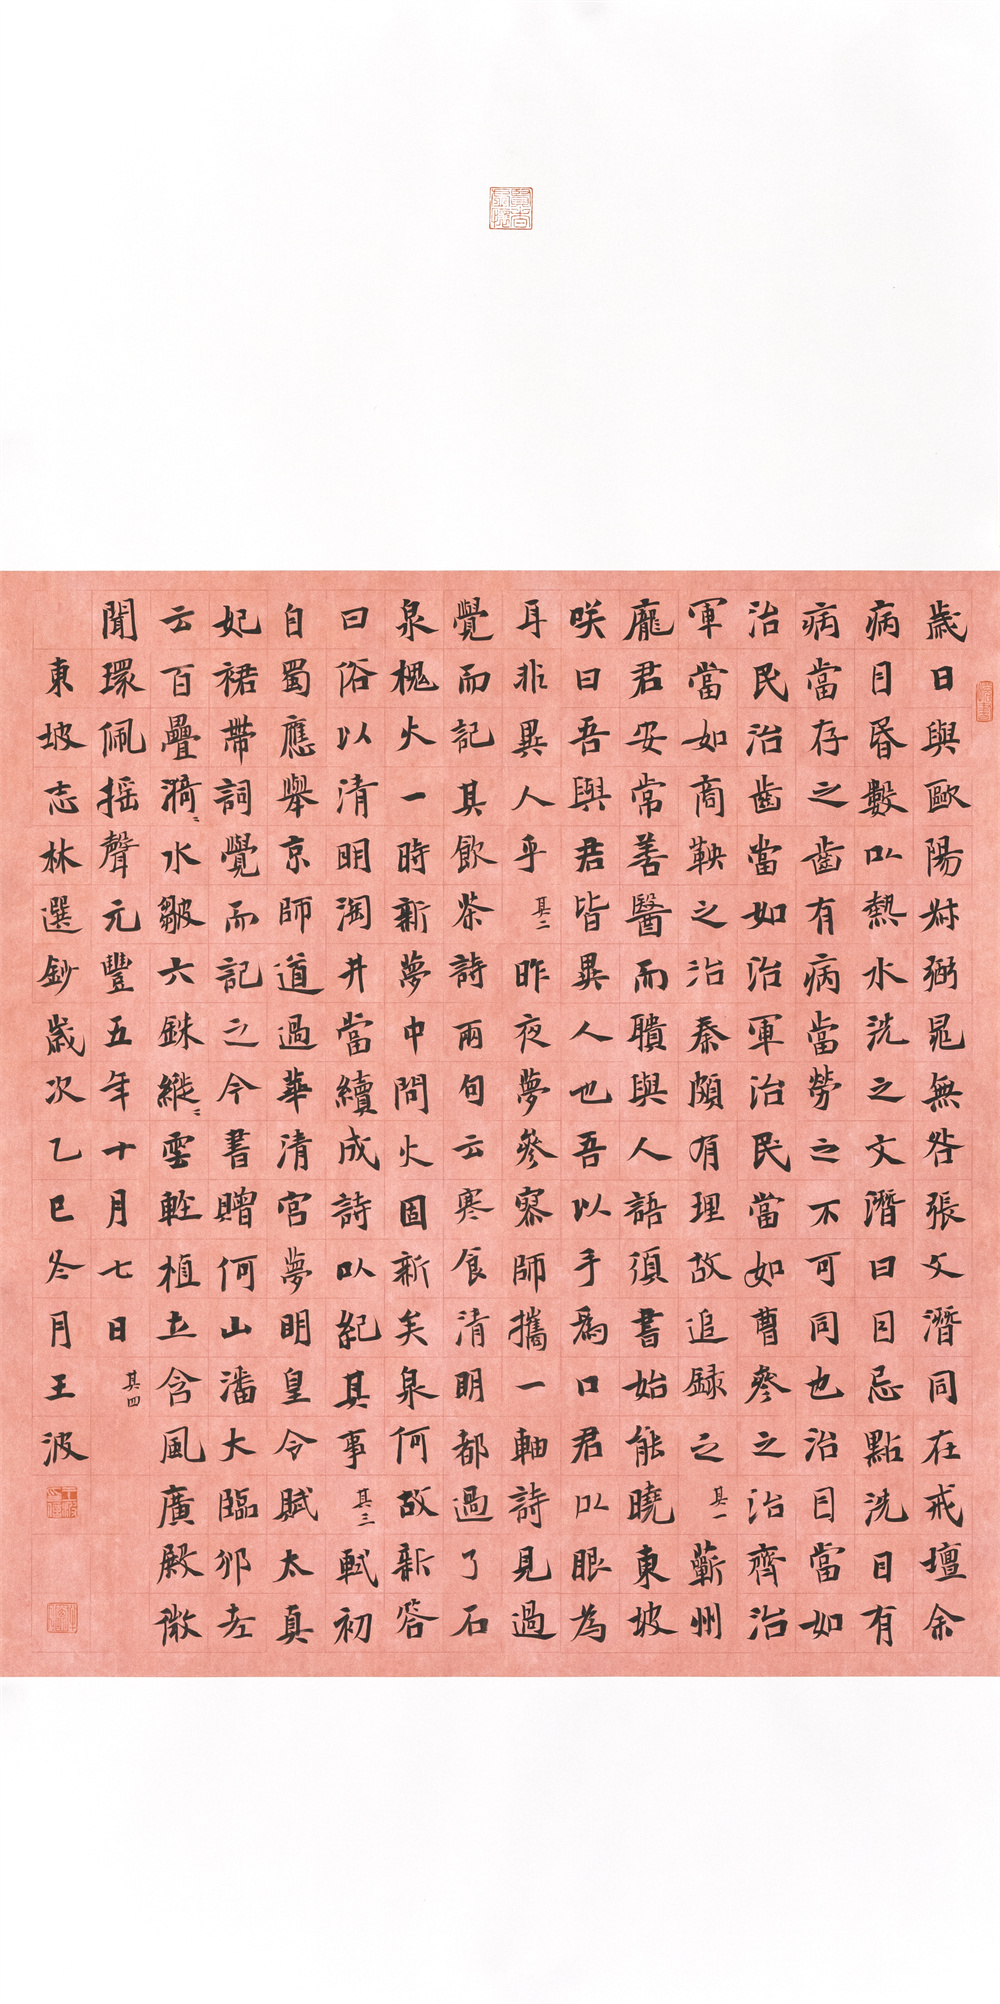 歲日與歐陽叔弼晁無咎張文潛同在戒壇余
病目昏數以熱水洗之文潛曰目忌點洗目有
病當存之齒有病當勞之不可同也治目當如
治民治齒當如治軍治民當如曹參之治齊治
軍當如商鞅之治秦頗有理故追録之 其一 蘄州
龐君安常善醫而聵與人語須書始能曉東坡
咲曰吾與君皆異人也吾以手為口君以眼為
耳非異人乎 其二 昨夜夢參寥師攜一軸詩見過
覺而記其飲茶詩兩句云寒食清明都過了石
泉槐火一時新夢中問火固新矣泉何故新答
曰俗以清明淘井當續成詩以紀其事 其三 軾初
自蜀應舉京師道過華清宮夢明皇令賦太真
妃裙帶詞覺而記之今書贈何山潘大臨邠老
云百疊漪〻水皺六銖縰〻雲輕植立含風廣殿微
聞環佩摇聲元豐五年十月七日 其四
東坡志林選鈔歲次乙巳冬月王波